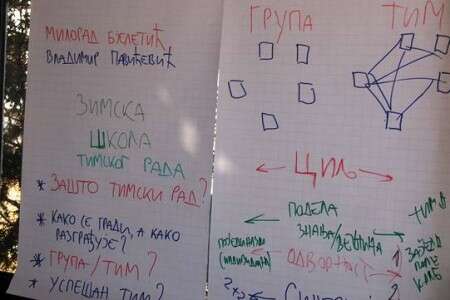 МИЛОРАД БЈЕЛЕТИЋ
ВЛАДИМИР ПАВИЋЕВИЋ
ЗИМСКА
ШКОЛА
ТИМСКОГ РАДА
* ЗАШТО ТИМСКИ РАД?
* КАКО СЕ ГРАДИ, А КАКО
РАЗГРАЂУЈЕ?
* ГРУПА/ТИМ?
* УСПЕШАН ТИМ?
ГРУПА ТИМ
ЦИЉ
ПОДЕЛА
ЗНАЊА/ВЕШТИНА
ПОЈЕДИНАЧНИ
ОДГОВОРНОСТ